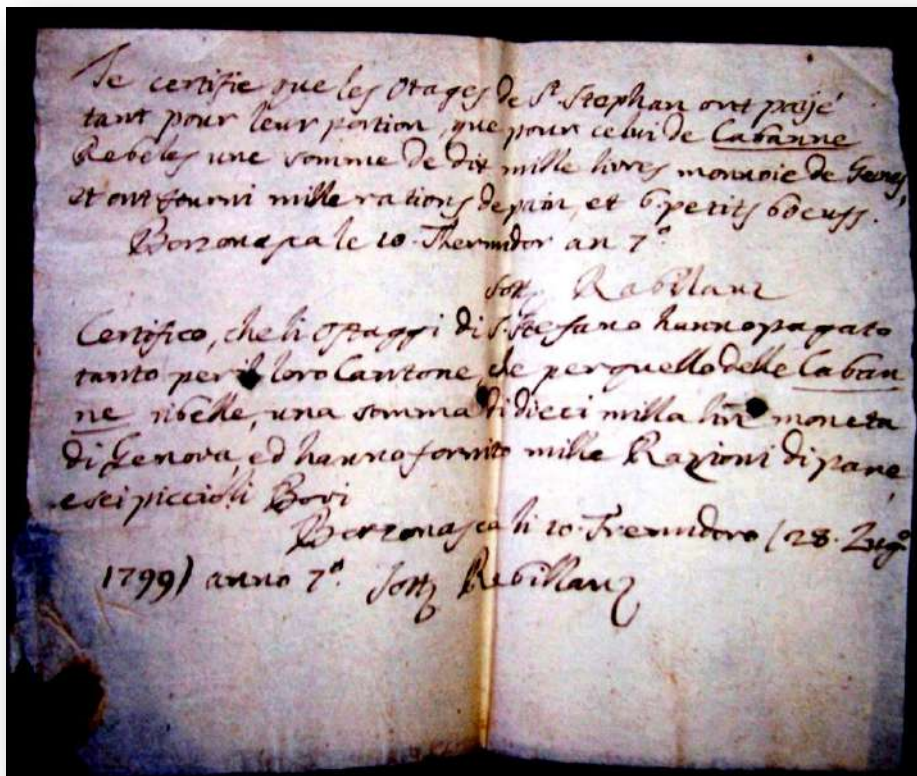 Je certifie que les Otages de St. Stephan ont payé
tant pour leur portion, que pour celui de Cabanne
Rebeles une somme de dix mille livres monnoie de Genes,
et ont fourni mille rations de pain, et 6 petits boeufs.
Borzonasca le 10 Thermidor an 7.º
Sottº Rabillanz
Certifico, che li Ostaggi di S. Stefano hanno pagato
tanto per il loro Cantone, che per quello delle Caban
ne ribelle, una somma di dieci milla lire moneta
di Genova, ed hanno fornito mille Razioni di pane,
e sei piccioli Bovi
Borzonasca li 10 Tremidoro (28. Lugº
1799) anno 7º. Sottº Rebillanz